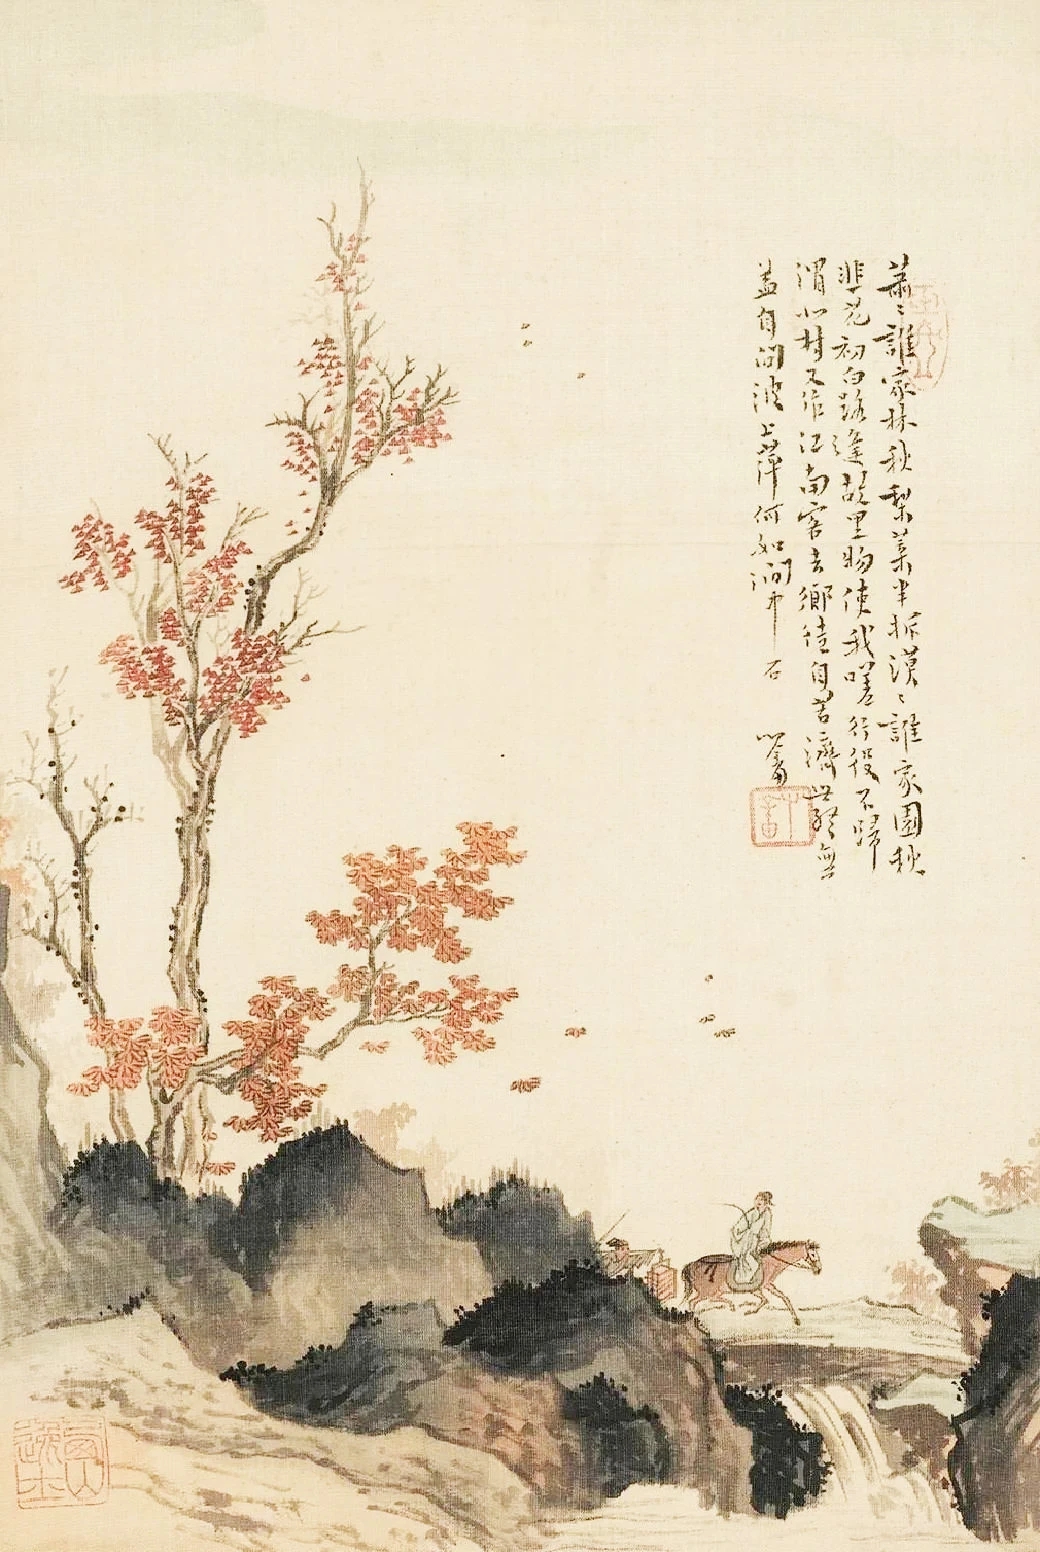 蕭〻誰家林秋梨葉半拆漠〻誰家園秋
韭花初白路逢故里物使我嗟行役不歸
渭北村又作江南客去鄉徒自苦濟世終無
益自問波上萍何如澗中石
心畬